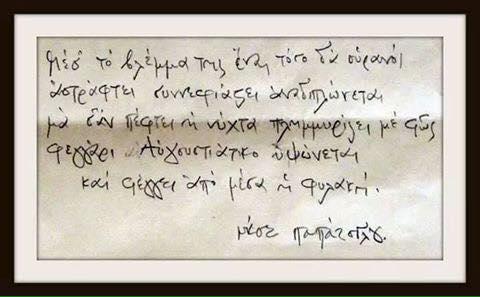 Μέσ' τὸ βλέμμα της ἕνας τόσο δὰ οὐρανός
ἀστράφτει συννεφιάζει ἀναδιπλώνεται
μὰ σὰν πέφτει ἡ νύχτα πλημμυρίζει μὲ φῶς
φεγγάρι Αὐγουστιάτικο ὑψώνεται
καὶ φέγγει ἀπὸ μέσα ἡ φυλακή.
νίκος παπάζογλου.